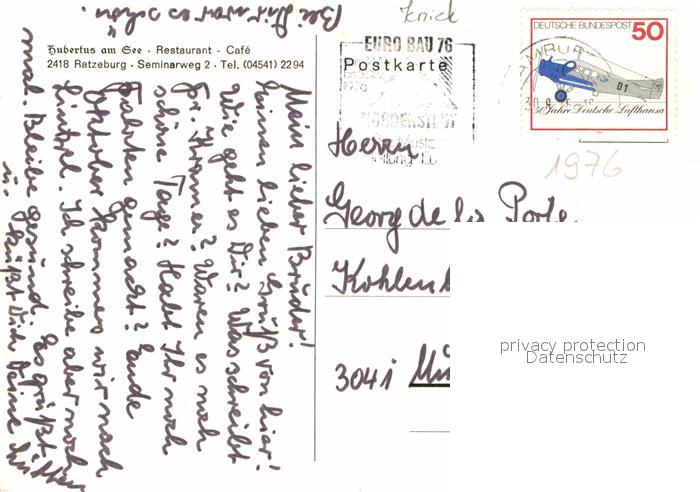 Hubertus am See · Restaurant - Café
2418 Ratzeburg · Seminarweg 2 · Tel. (04541) 2294
Mein lieber Bruder!
einen lieben Gruß von hier!
Wie geht es Dir? Was schreibt
Fr. Kromer? Waren es noch
schöne Tage? Habt Ihr noch
Fahrten gemacht? Ende
Oktober kommen wir nach
Ich schreibe aber noch
mal. Bleibe gesund. Es grüßt
u. küßt Dich Deine
Bei Dir war es schön.
knick
EURO BAU 76
Postkarte
DEUTSCHE BUNDESPOST 50
D1
50 Jahre Deutsche Lufthansa
1976
Herrn
Georg de la Porte
Kohlen
3041
privacy protection
Datenschutz